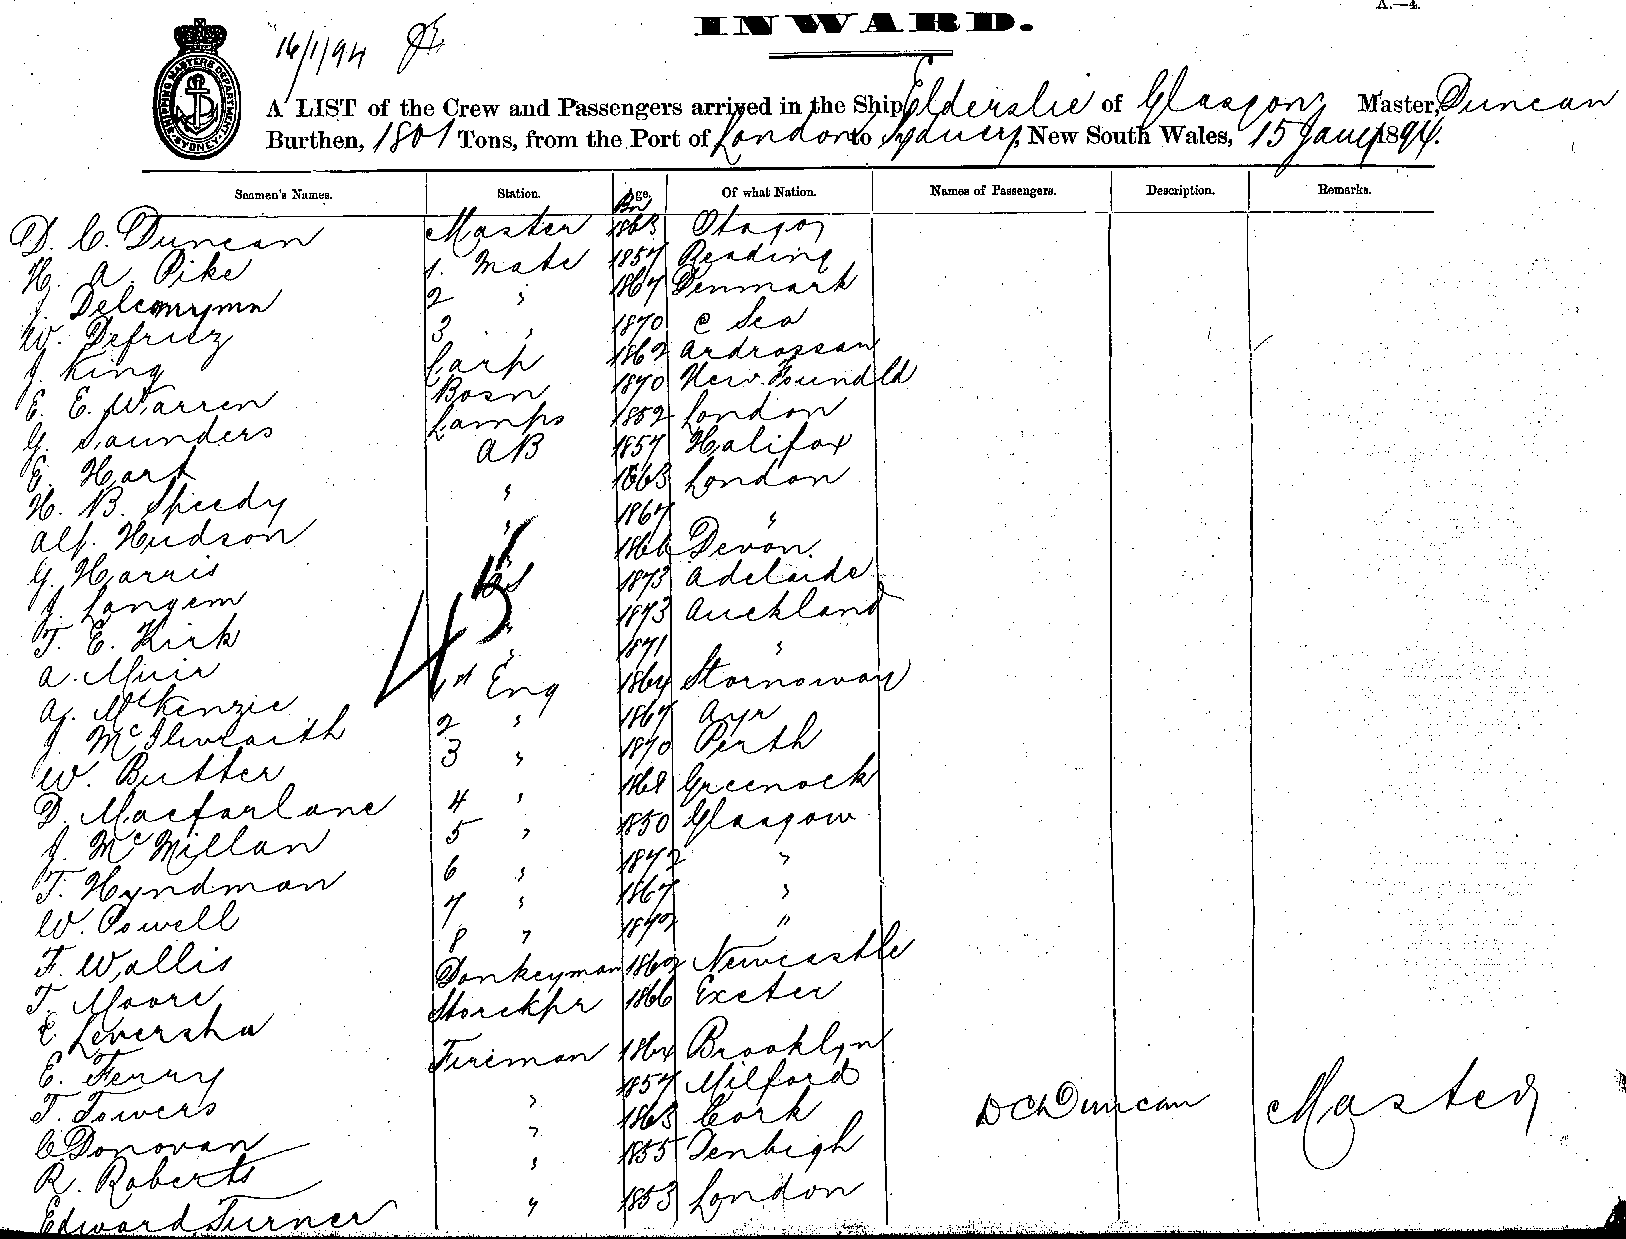 A.—4.
INWARD.
16/1/94
SHIPPING MASTERS DEPARTMENT SYDNEY
A LIST of the Crew and Passengers arrived in the Ship Elderslie of Glasgow, Master, Duncan
Burthen, 1801 Tons, from the Port of London to Sydney, New South Wales, 15 Jany 1894.
Seamen's Names. Station. Age. Of what Nation. Names of Passengers. Description. Remarks.
Bn
D. C. Duncan Master 1863 Otago
H. A. Pike 1. Mate 1857 Reading
J. 2 " 1867 Denmark
W. Defriez 3 " 1870 @ Sea
J. King Carp 1862 Ardrossan
E. E. Warren Bosn 1870 New Foundld
G. Saunders Lamps 1852 London
E. Hart AB 1857 Halifax
H. B. Speedy " 1863 London
Alf. Hudson " 1867 "
G. Harris 1866 Devon.
J. Langem 1873 Adelaide
T. E. Kirk 1873 Auckland
A. Muir " 1871 "
A. McKenzie 1st Eng 1864 Stornoway
J. McIlwraith 2 " 1867 Ayr
W. Butter 3 " 1870 Perth
D. Macfarlane 4 " 1868 Greenock
J. McMillan 5 " 1850 Glasgow
T. Hyndman 6 " 1872 "
W. Powell 7 " 1867 "
F. Wallis 8 " 1872 "
T. Moore Donkeyman 1862 Newcastle
E. Leversha Storekpr 1866 Exeter
E. Ferry Fireman 1864 Brooklyn
T. Towers " 1857 Milford
C. Donovan " 1863 Cork
R. Roberts " 1855 Denbigh
Edward Turner " 1853 London
45
D C Duncan Master